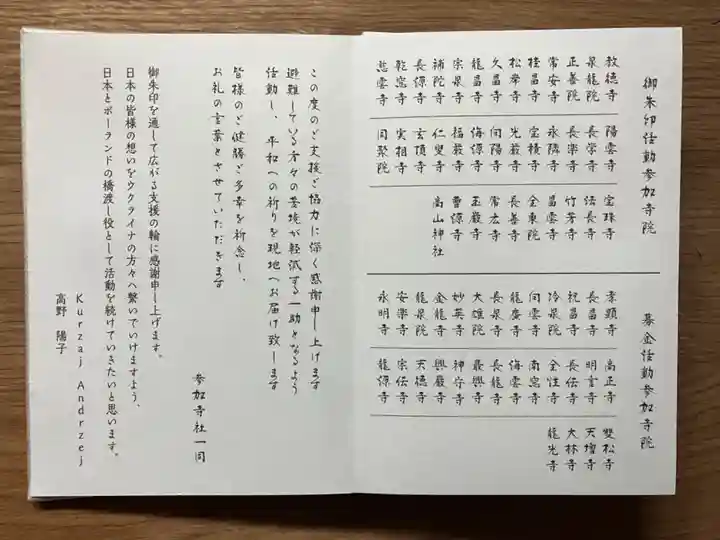 御朱印活動参加寺院
教徳寺
泉龍院
正善院
常安寺
桂昌寺
松岸寺
久昌寺
龍昌寺
宗泉寺
補陀寺
長源寺
乾窓寺
慈雲寺
陽雲寺
長学寺
長楽寺
永隣寺
宝積寺
光巌寺
向陽寺
海源寺
福厳寺
仁叟寺
玄頂寺
実相寺
同聚院
宝珠寺
法長寺
竹芳寺
昌雲寺
全東院
長善寺
常広寺
玉巌寺
曹源寺
高山神社
募金活動参加寺院
孝顕寺
長昌寺
祝昌寺
冷泉院
向雲寺
龍廣寺
長泉寺
大雄院
妙英寺
金龍寺
龍泉院
安楽寺
永明寺
高正寺
明言寺
長伝寺
全性寺
南窓寺
海雲寺
長龍寺
最興寺
神守寺
興巌寺
天徳寺
宗伝寺
龍源寺
雙松寺
天増寺
大林寺
龍光寺
この度のご支援ご協力に深く感謝申し上げます
避難している方々の苦境が軽減する一助となるよう
活動し、平和への祈りを現地へお届け致します
皆様のご健勝ご多幸を祈念し、
お礼の言葉とさせていただきます
参加寺社一同
御朱印を通して広がる支援の輪に感謝申し上げます。
日本の皆様の想いをウクライナの方々へ繋いでいけますよう、
日本とポーランドの橋渡し役として活動を続けていきたいと思います。
Kurzaj Andrzej
高野 陽子